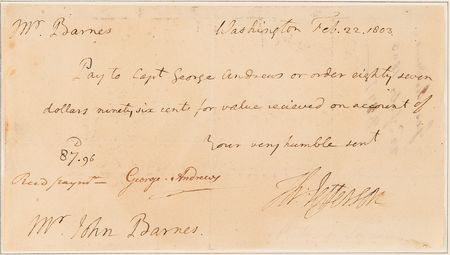 Mr. Barnes Washington Feb. 22. 1803
Pay to Capt George Andrews or order eighty seven
dollars ninety six cents for value recieved on account of
Your very humble servt
D
87.96
Recd paymt — George Andrews
Th: Jefferson
Mr. John Barnes.